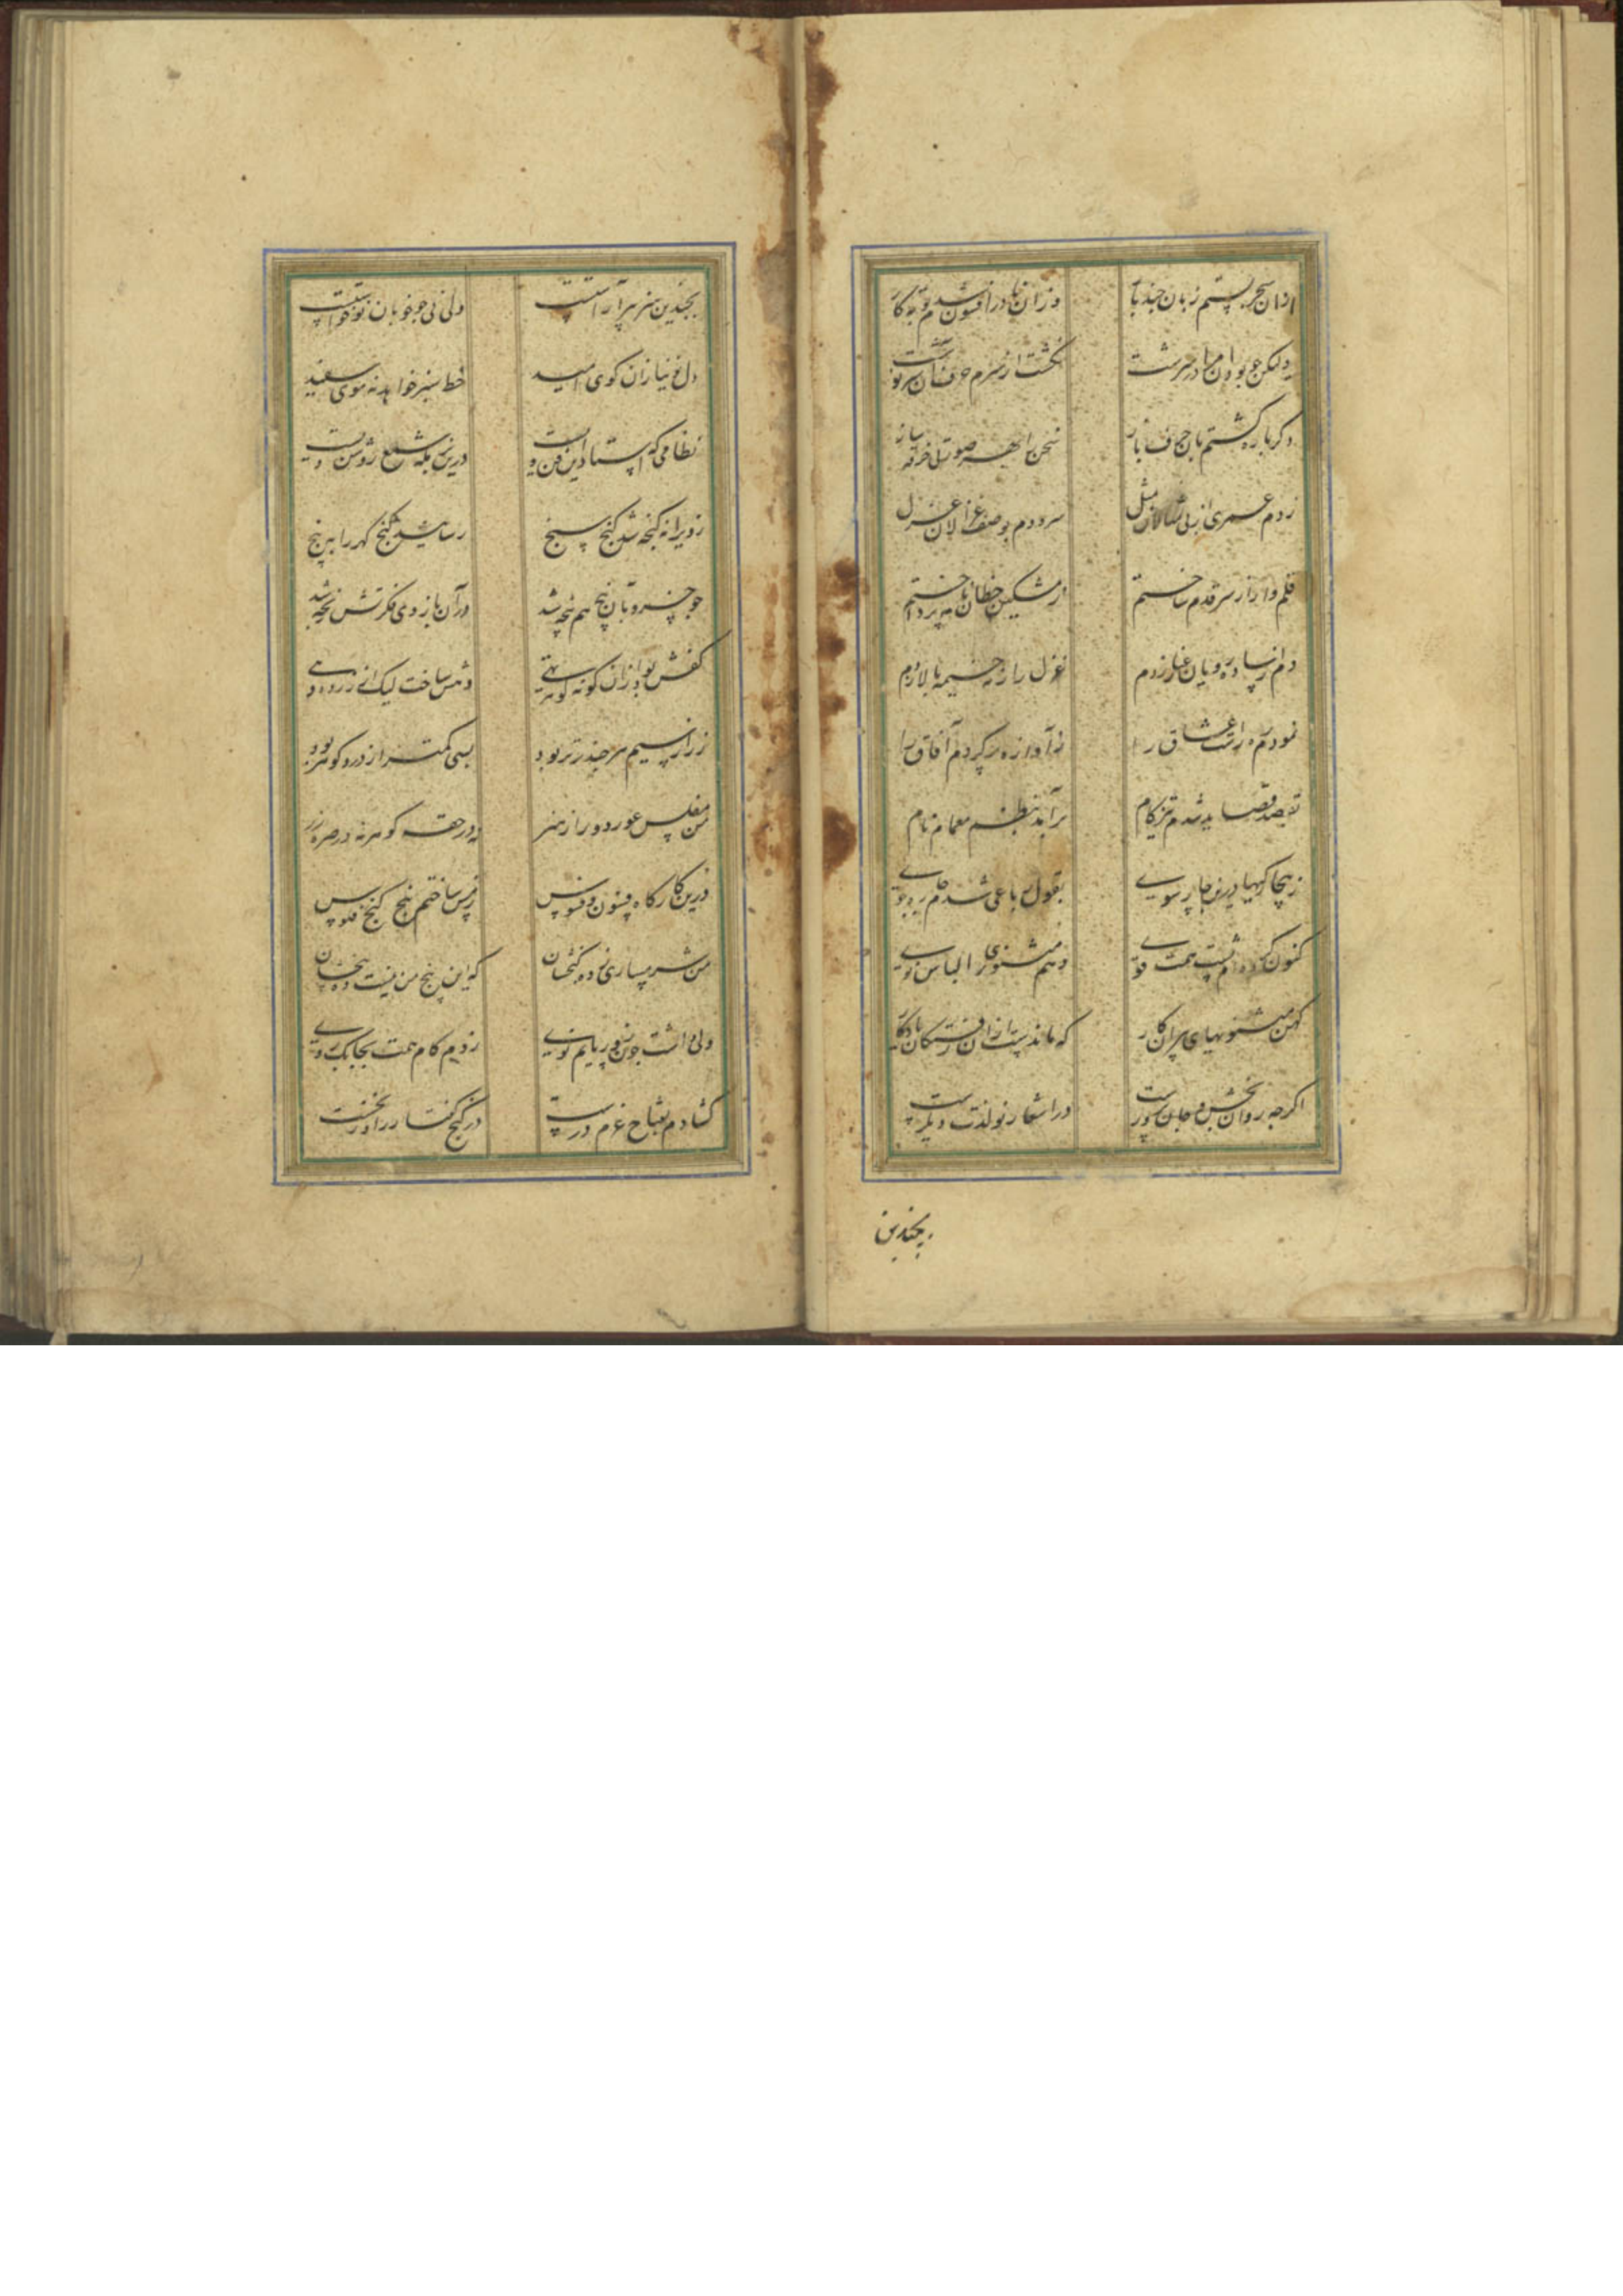 ازان سحر بستم زبان چند بار وزان نادر افسون شدم توبه کار
ولیکن چو بود آن مرا در سرشت نگشت از سرم حرفی آن سرنوشت
دگر باره گشتم بآن حرف باز سخن را بهر صورتی خرقه ساز
زدم عمری از بی مثالان مثل سرودم بوصف غزالان غزل
قلم وار از سر قدم ساختم از مشکین خطان نامه پرداختم
دم از ساده رویان غزل زدم غزل را ز مه خیمه بالا زدم
نمودم ره راست عشاق را ز آوازه پر کردم آفاق را
بقصد قصاید شدم تیزکام برآمد بنظم معما نام
ز هیچارگیها درین چارسوی بقول رباعی شدم چاره جوی
کنون کرده‌ام پشت همت قوی دهم مثنوی را لباس نوی
کهن مثنویهای پیران کار که ماندست ازان رفتگان یادگار
اگرچه روان بخش و جان پرورست در اشعار نو لذت دیگرست
بچندین
بچندین هنر پیر آراستست ولی نی چو خوبان نوخواستست
دل نی نیازان کوی امید خط سبز خواهد نه موی سفید
نظامی که استاد این فن ویست درین بزمگه شمع روشن ویست
ز ویرانه گنجه شد گنج سنج رسانید گنج گهر را به پنج
چو خسرو بآن پنج هم پنجه شد وز آن بازوی فکرتش رنجه شد
کفش بود ازان گونه گوهر تهی دهش ساخت لیک از زر ده دهی
زر از سیم هر چند برتر بود بسی کمتر از در و گوهر بود
من مفلس عور دور از هنر نه در حقه گوهر نه در صره زر
درین کارگاه فسون و فسوس ز مس ساختم پنج گنج فلوس
من شرمساری ز ده گنجشان که این پنج من نیست ده پنجشان
ولی داشت چون زور پایم نوی زدم گام همت بچابک روی
گشادم بمفتاح عزم درست در گنج گفتار را در نخست